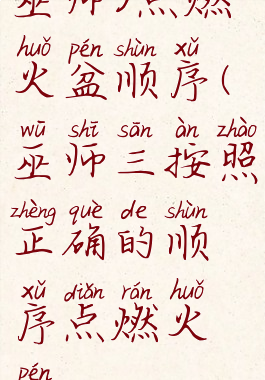 巫师点燃
huǒ pén shùn xǔ
火盆顺序(
wū shī sān àn zhào
巫师三按照
zhèng què de shùn
正确的顺
xǔ diǎn rán huǒ
序点燃火
pén